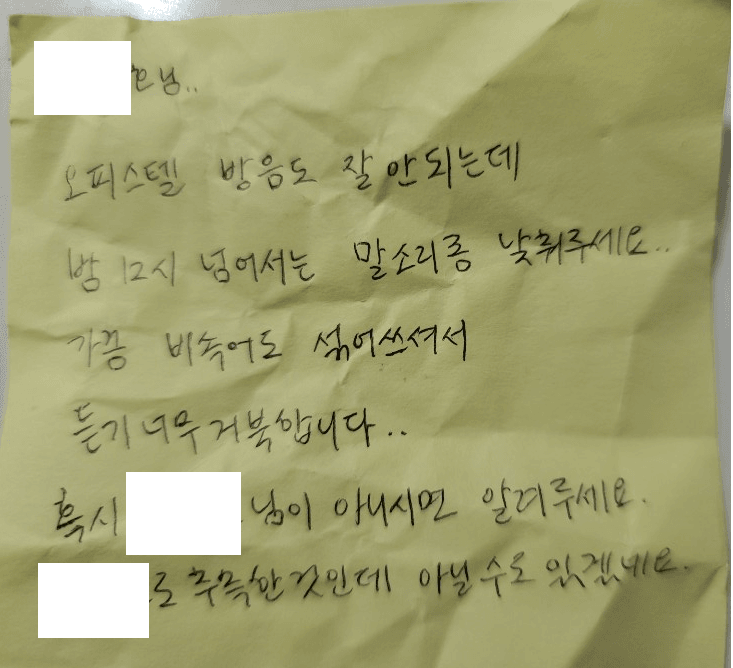 호님..
오피스텔 방음도 잘 안되는데
밤 12시 넘어서는 말소리좀 낮춰주세요..
가끔 비속어도 섞어쓰셔서
듣기 너무 거북합니다..
혹시 님이 아니시면 알려주세요.
로 추측한것인데 아닐수도 있겠네요.